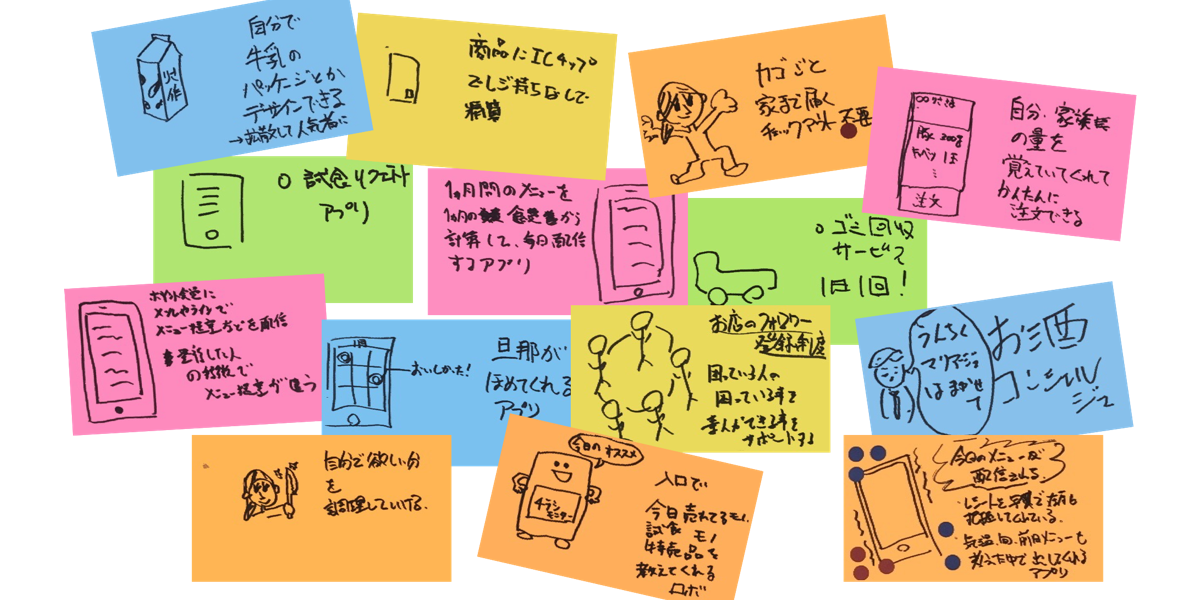 自分で
牛乳の
パッケージとか
デザインできる
→拡散して人気者に
商品にICチップ
でレジ待ちなしで
精算
カゴごと
家まで届く
チェックアウト不要
自分、家族
の量を
覚えていてくれて
かんたんに
注文できる
豚 200g
キャベツ 1玉
注文
○ 試食リクエスト
アプリ
1ヶ月間のメニューを
1ヶ月の 食費 から
計算して、毎日配信
するアプリ
○ゴミ回収
サービス
1日1回!
ポイント会員に
メルマガやラインで
メニュー提案などを配信
登録した人
の特徴で
メニュー提案が違う
旦那が
ほめてくれる
アプリ
おいしかった!
お店のフォロワー
登録制度
困っている人の
困っている事を
喜んでできる事を
サポートする
うんちく
マリアージュ
はまかせて
お酒
コンシェルジュ
自分で欲しい分
を
調理していける。
今日のオススメ
チラシ
モニター
入口で
今日売れてるモノ、
試食 モノ
特売品を
教えてくれる
ロボ
今日のメニューが
配信される。
・レシートを写真で 
把握してくれている。
・気温、 前日メニューも
 出してくれる
アプリ